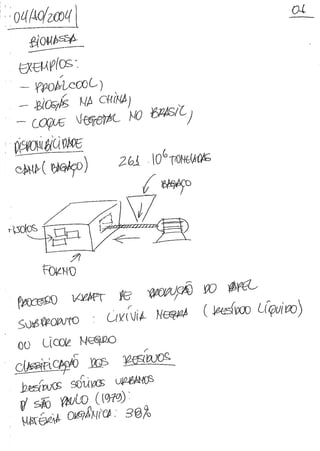 04/10/2004
01
BIOMASSA
EXEMPLOS:
- PROÁLCOOL;
- BIOGÁS NA CHINA;
- COQUE VEGETAL NO BRASIL;
DISPONIBILIDADE
CANA (BAGAÇO) 261 . 10⁶ TONELADAS
BAGAÇO
TIJOLOS
FORNO
PROCESSO KRAFT DE PRODUÇÃO DO PAPEL
SUBPRODUTO : LIXÍVIA NEGRA (RESÍDUO LÍQUIDO)
OU LICOR NEGRO
CLASSIFICAÇÃO DOS RESÍDUOS
RESÍDUOS SÓLIDOS URBANOS
P/ SÃO PAULO (1979):
MATÉRIA ORGÂNICA: 38%